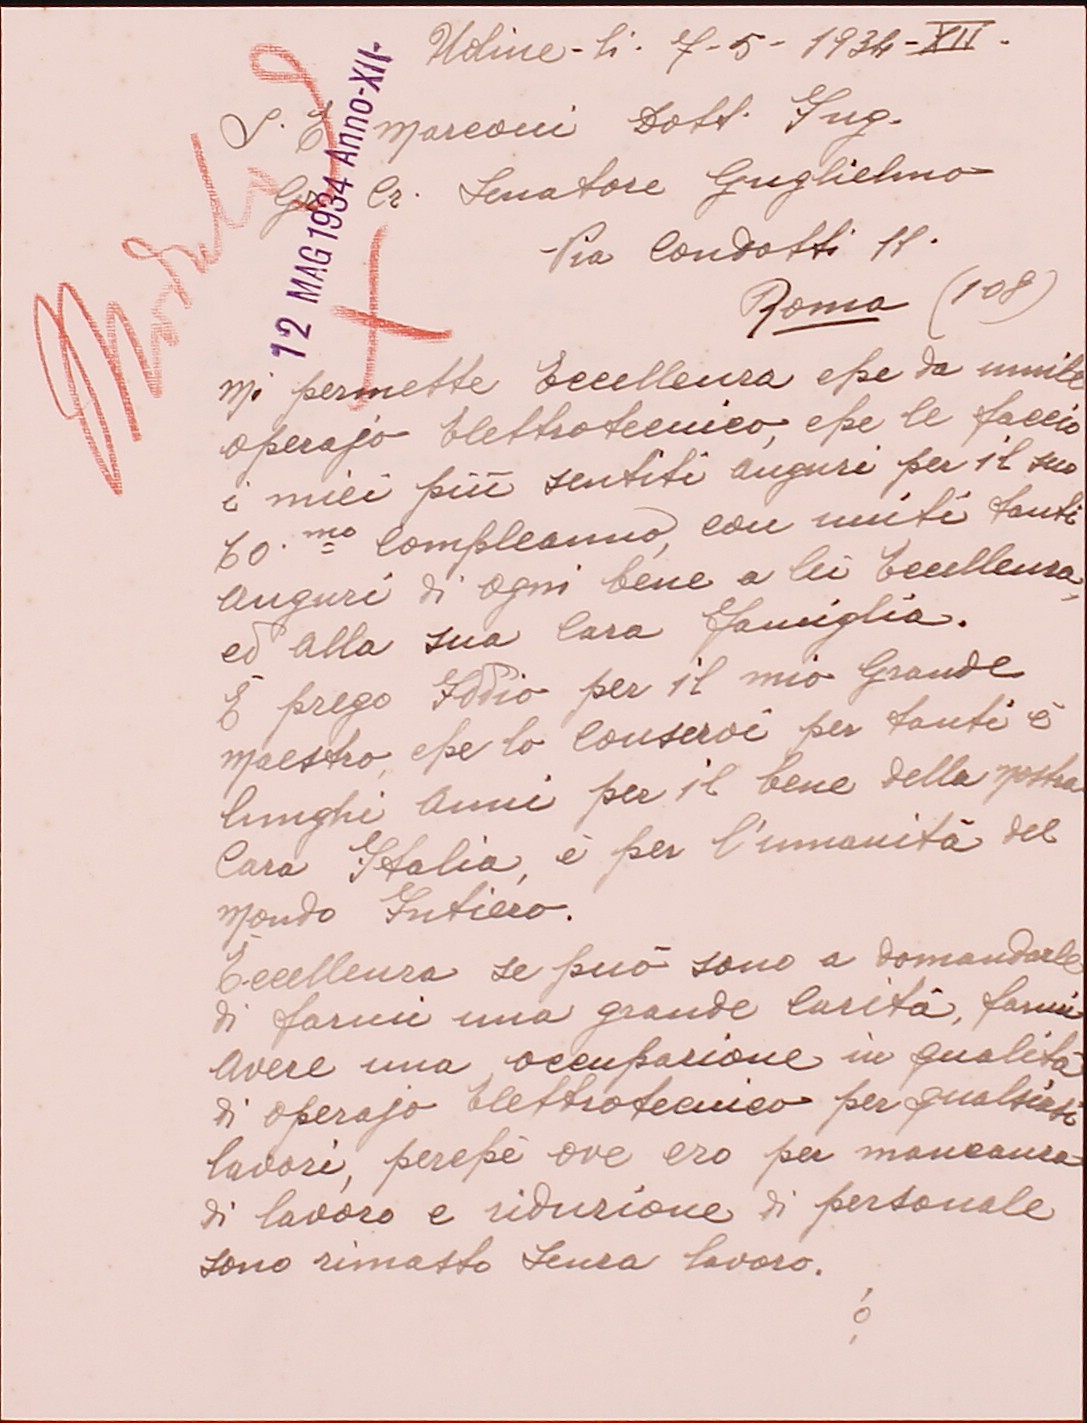 Udine - li. 7-5-1934-XII.
12 MAG 1934 Anno-XII-
S. E Marconi Dott. Ing.
Gr. Cr. Senatore Guglielmo
Via Condotti 11.
Roma (108)
Mi permette Eccellenza che da umile
operajo Elettrotecnico, che le faccio
i miei più sentiti Auguri per il suo
60.mo Compleanno, con uniti tanti
Auguri di ogni bene a lei Eccellenza,
ed alla sua Cara Famiglia.
E prego Iddio per il mio Grande
Maestro, che lo Conservi per tanti è
lunghi Anni per il bene della nostra
Cara Italia, è per l'umanità del
Mondo Intiero.
Eccellenza se può sono a domandarle
di farmi una grande Carità, farmi
Avere una occupazione in qualità
di operajo Elettrotecnico per qualsiasi
lavori, perchè ove ero per mancanza
di lavoro e riduzione di personale
sono rimasto senza lavoro.